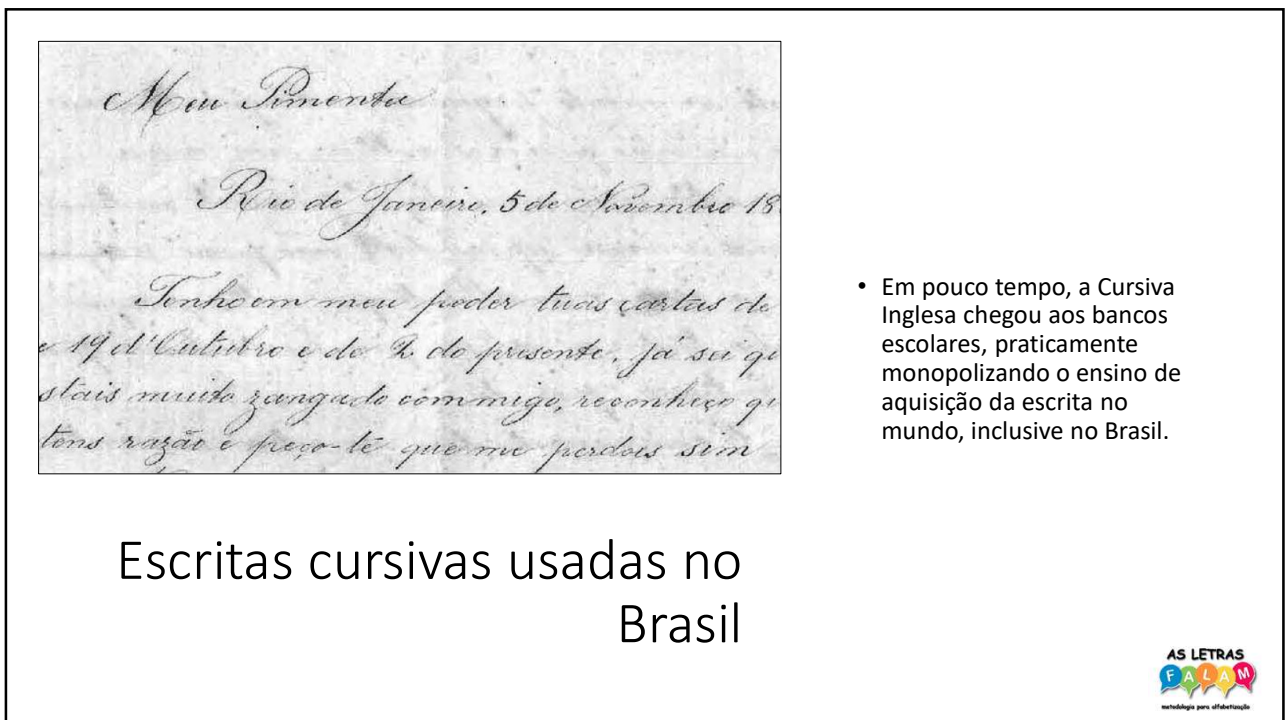 Meu Pimenta
Rio de Janeiro, 5 de Novembro 18
Tenho em meu poder tuas cartas de
e 19 d'Outubro e de 2 do presente, já sei qu
stais muito zangado commigo, reconheço qu
tens razão e peço-te que me perdoes sim
Escritas cursivas usadas no
Brasil
• Em pouco tempo, a Cursiva
Inglesa chegou aos bancos
escolares, praticamente
monopolizando o ensino de
aquisição da escrita no
mundo, inclusive no Brasil.
AS LETRAS
FALAM
metodologia para alfabetização